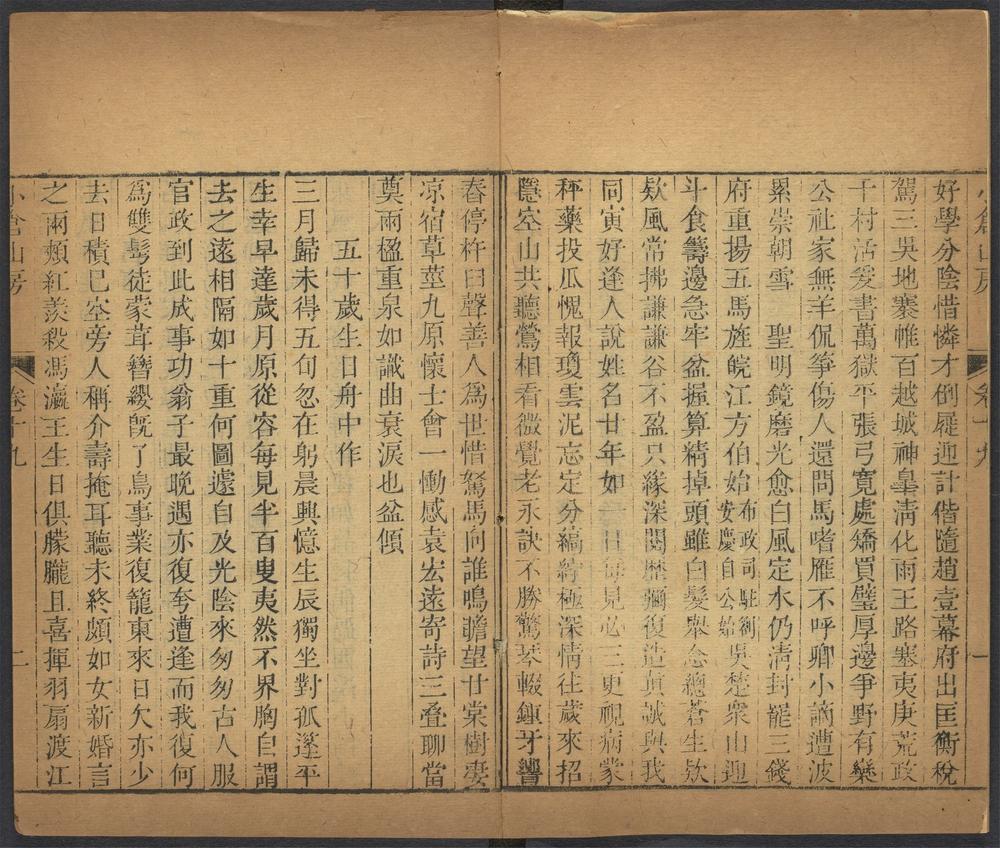 小倉山房 卷十九 一
好學分陰惜憐才倒屣迎計偕隨趙壹幕府出匡衡稅
駕三吳地褰帷百越城神皋清化雨王路塞夷庚荒政
千村活爰書萬獄平張弓寬處矯買璧厚邊爭野有欒
公社家無羊侃箏傷人還問馬嗜雁不呼卿小謫遭波
累崇朝雪 聖明鏡磨光愈白風定水仍清封罷三錢
府重揚五馬旌皖江方伯始布政司駐劄安慶自公始吳楚衆山迎
斗食籌邊急牢盆握算精掉頭雖白髮舉念總蒼生欬
欬風常拂謙謙谷不盈只緣深閱歷彌復造真誠與我
同寅好逢人說姓名廿年如一日每見必三更視病蒙
秤藥投瓜愧報瓊雲泥忘定分縞紵極深情往歲來招
隱空山共聽鶯相看微覺老永訣不勝驚琴輟鍾牙響
舂停杵臼聲善人爲世惜駑馬向誰鳴瞻望甘棠樹凄
凉宿草塋九原懷士會一慟感袁宏遠寄詩三叠聊當
奠雨楹重泉如識曲衰淚也盆傾
五十歲生日舟中作
三月歸未得五旬忽在躬晨興憶生辰獨坐對孤篷平
生幸早達歲月原從容每見半百叟夷然不界胸自謂
去之遠相隔如十重何圖遽自及光陰來匆匆古人服
官政到此成事功翁子最晚遇亦復夸遭逢而我復何
爲雙髩徒蒙茸簪纓旣了鳥事業復籠東來日欠亦少
去日積巳空旁人稱介壽掩耳聽未終頗如女新婚言
之兩頰紅羨殺馮瀛王生日俱朦朧且喜揮羽扇渡江
小倉山房 卷十九 二